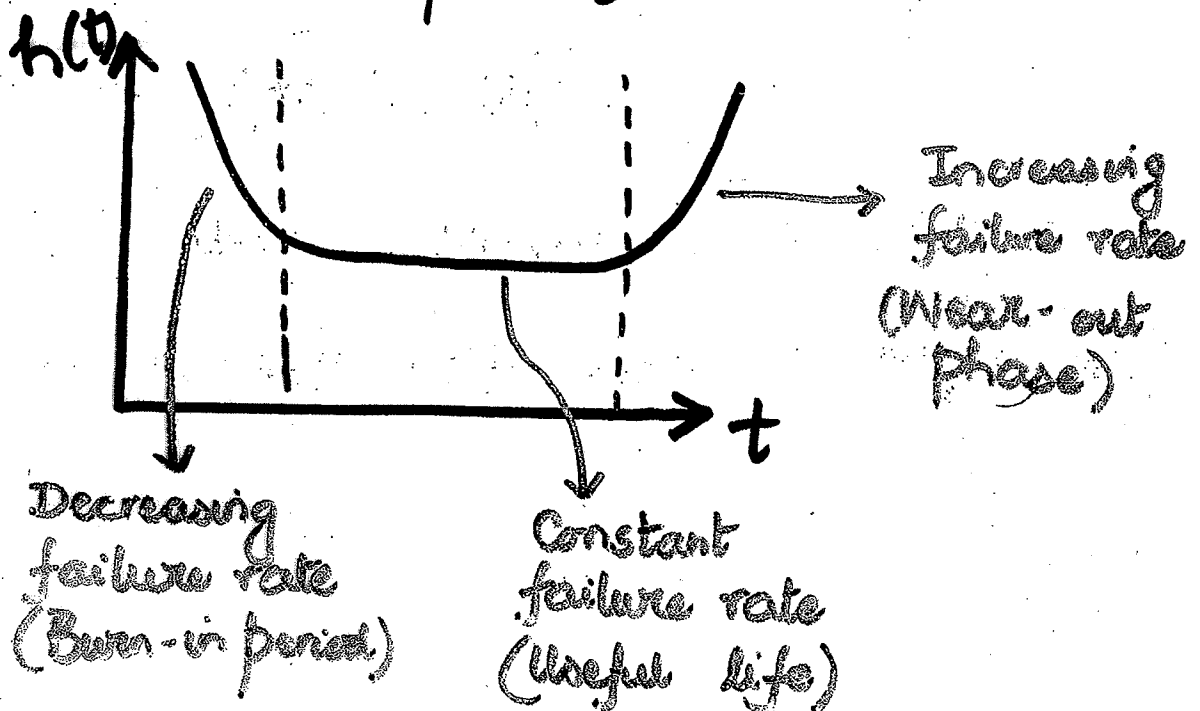 h(t)
Increasing
failure rate
(Wear-out
phase)
t
Decreasing
failure rate
(Burn-in period)
Constant
failure rate
(Useful life)